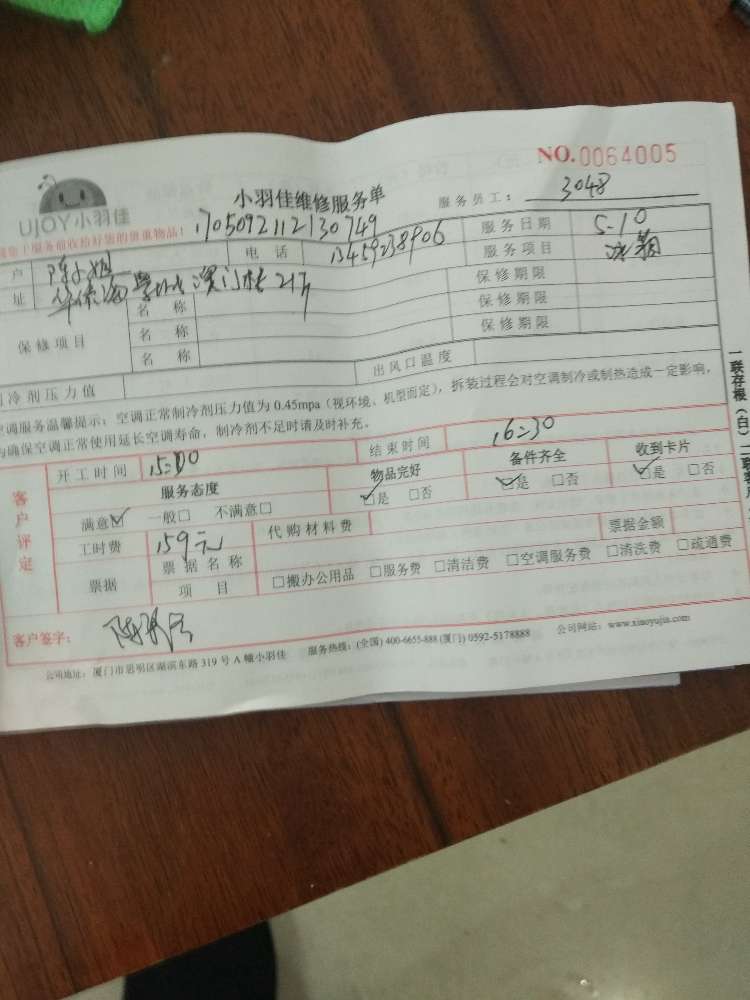 NO.0064005
UJOY小羽佳
小羽佳维修服务单
服务员工： 3048
服务前收给好您的贵重物品！ 170509211213 0749
户 陈小姐 电 话 13459238906 服务日期 5-10
址 澳门楼 服务项目
保修项目 名 称 保修期限
名 称 保修期限
名 称 保修期限
冷剂压力值 出风口温度
调服务温馨提示：空调正常制冷剂压力值为 0.45mpa（视环境、机型而定），拆装过程会对空调制冷或制热造成一定影响，
确保空调正常使用延长空调寿命，制冷剂不足时请及时补充。
客户评定
开工时间 15:00 结束时间 16:30
服务态度 物品完好 备件齐全 收到卡片
满意☑ 一般□ 不满意□ ☑是 □否 ☑是 □否 ☑是 □否
工时费 159元 代购材料费 票据金额
票据 票据名称
项 目 □搬办公用品 □服务费 □清洁费 □空调服务费 □清洗费 □疏通费
客户签字：
公司地址：厦门市思明区湖滨东路 319 号 A 幢小羽佳 服务热线：(全国) 400-6655-888 (厦门) 0592-5178888 公司网站：www.xiaoyujia.com
一联存根（白）二联客户